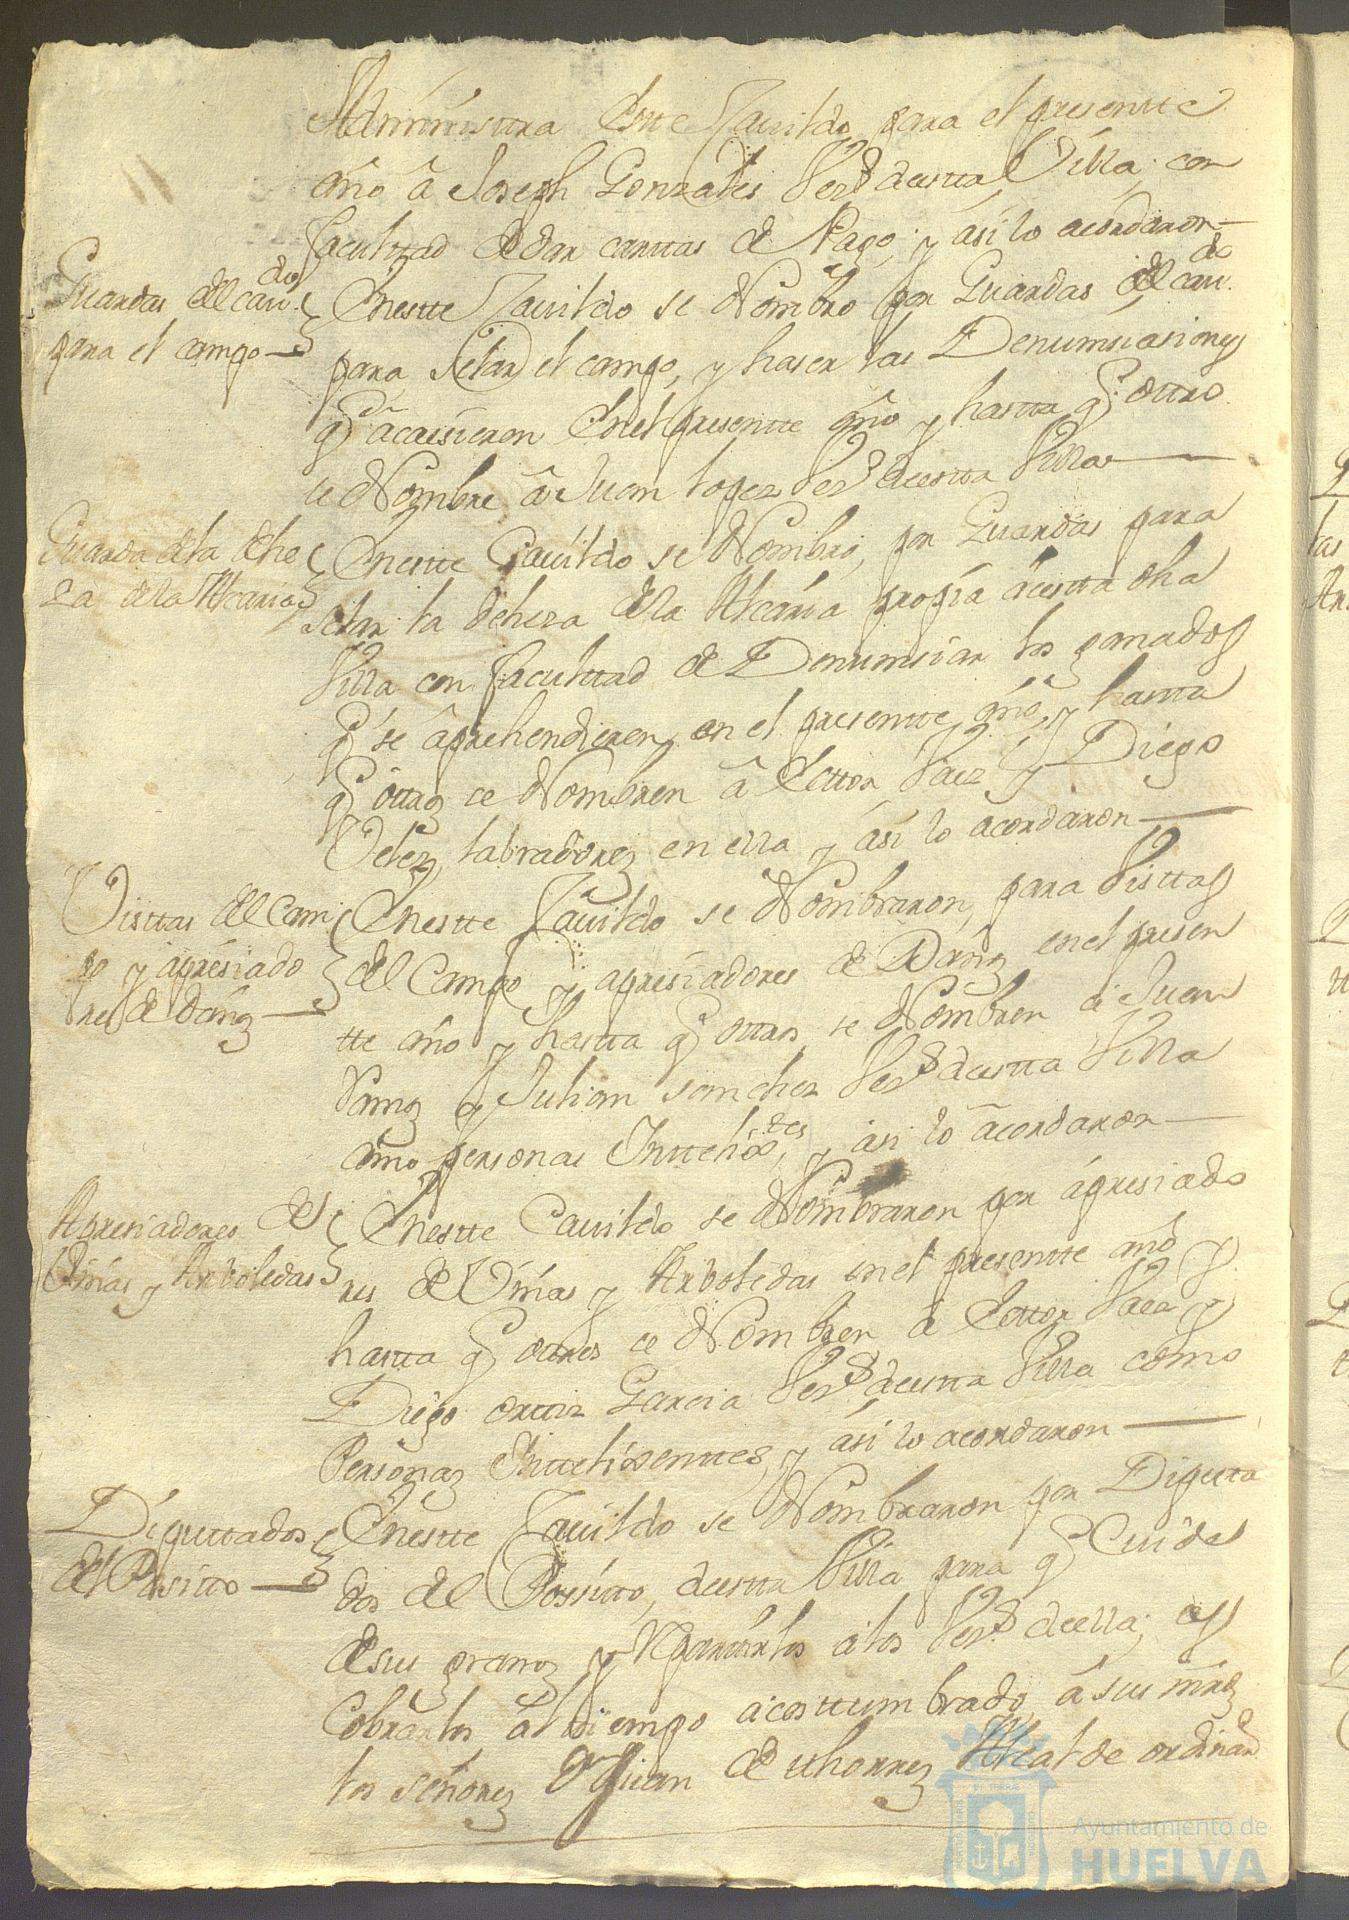 Administra Estte Cavildo para el presentte
año â Joseph Gonzales Vezº destta Villa, con
facultad de dar carttas de Pago, y así lo acordaron
Guardas del cavdo
para el campo
Enestte Cavildo se Nombro por Guardas del cavdo
para Selar el campo, y haser las Denunsiasiones
q acaesieren Enel presentte año y hastta q ottro
se Nombre â Juan lopez Vezº destta Villa
Guarda dela dehe
za dela Alcaria
Enestte Cavildo se Nombro, por Guardas para
selar la deheza dela Alcaria propia destta dha
Villa con facultad de Denunsiar los ganados
q se âprehendieren en el presentte año, y hastta
q ottros se Nombren â Paez y Diego
Velez, labradores en ella y así lo acordaron
Visttas del Cam
po y apresiado
res de daños
Enestte Cavildo se Nombraron, para Visttas
del Campo y apresiadores de Daños enel presen
tte año y hastta q ottros se Nombren â Juan
Ramos y Julian sanchez Vezs destta Villa
como personas Inttelixtes, y asi lo acordaron
Apresiadores de
Viñas y Arboledas
Enestte Cavildo se Nombraron por apresiado
res de Viñas y Arboledas enel presentte año y
hastta q ottros se Nombren â Paez y
Diego orttiz Garcia Vezs destta Villa como
Personas Inttelixentes, y así lo acordaron
Diputtados
del Positto
Enestte Cavildo se Nombraron por Diputa
dos del Possitto, destta Villa para q Cuiden
desus granos y Reparttirlos alos Vezs deella, y
Cobrarlos al tiempo acosttumbrado â sus mrds
los señores Dn Juan de Alcalde ordinario
Ayuntamiento de
HUELVA